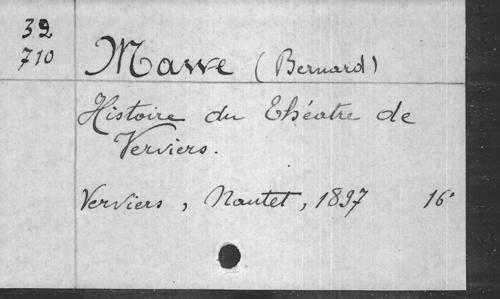 32
710
Mawe (Bernard)
Histoire du Théatre de
Verviers.
Verviers, Nautet, 1897 16°